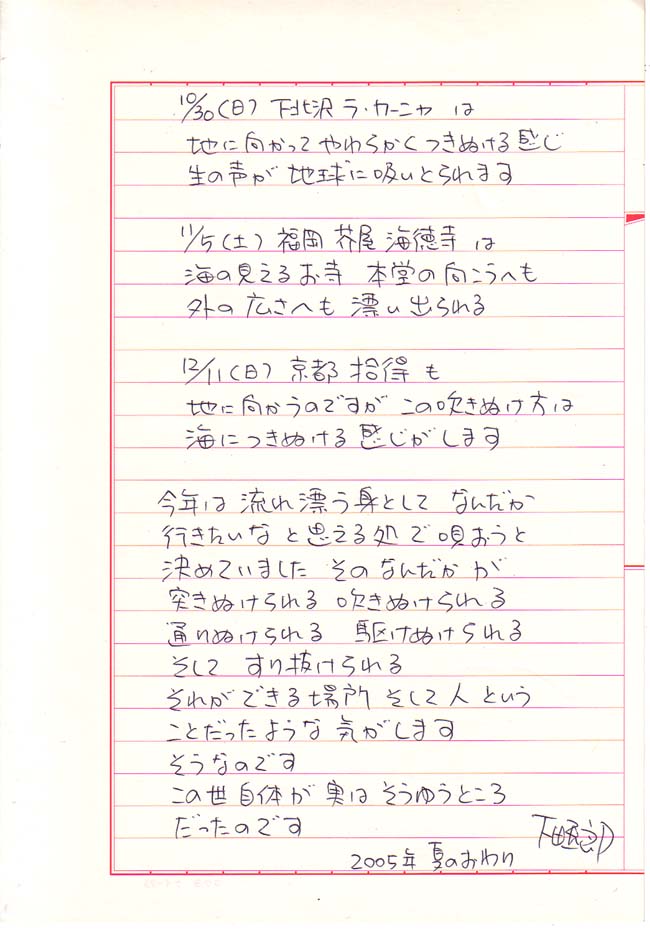 10/30(日) 下北沢 ラ・カーニャ は
地に向かって やわらかく つきぬける感じ
生の声が 地球に吸いとられます
11/5(土) 福岡 芥屋 海徳寺 は
海の見えるお寺 本堂の向こうへも
外の広さへも 漂い出られる
12/11(日) 京都 拾得 も
地に向かうのですが この吹きぬけ方は
海につきぬける 感じがします
今年は 流れ漂う身として なんだか
行きたいな と思える処 で 唄おうと
決めていました そのなんだか が
突きぬけられる 吹きぬけられる
通りぬけられる 駆けぬけられる
そして すり抜けられる
それが できる場所 そして人 という
ことだったような 気がします
そうなのです
この世 自体が 実は そうゆうところ
だったのです
2005年 夏のおわり